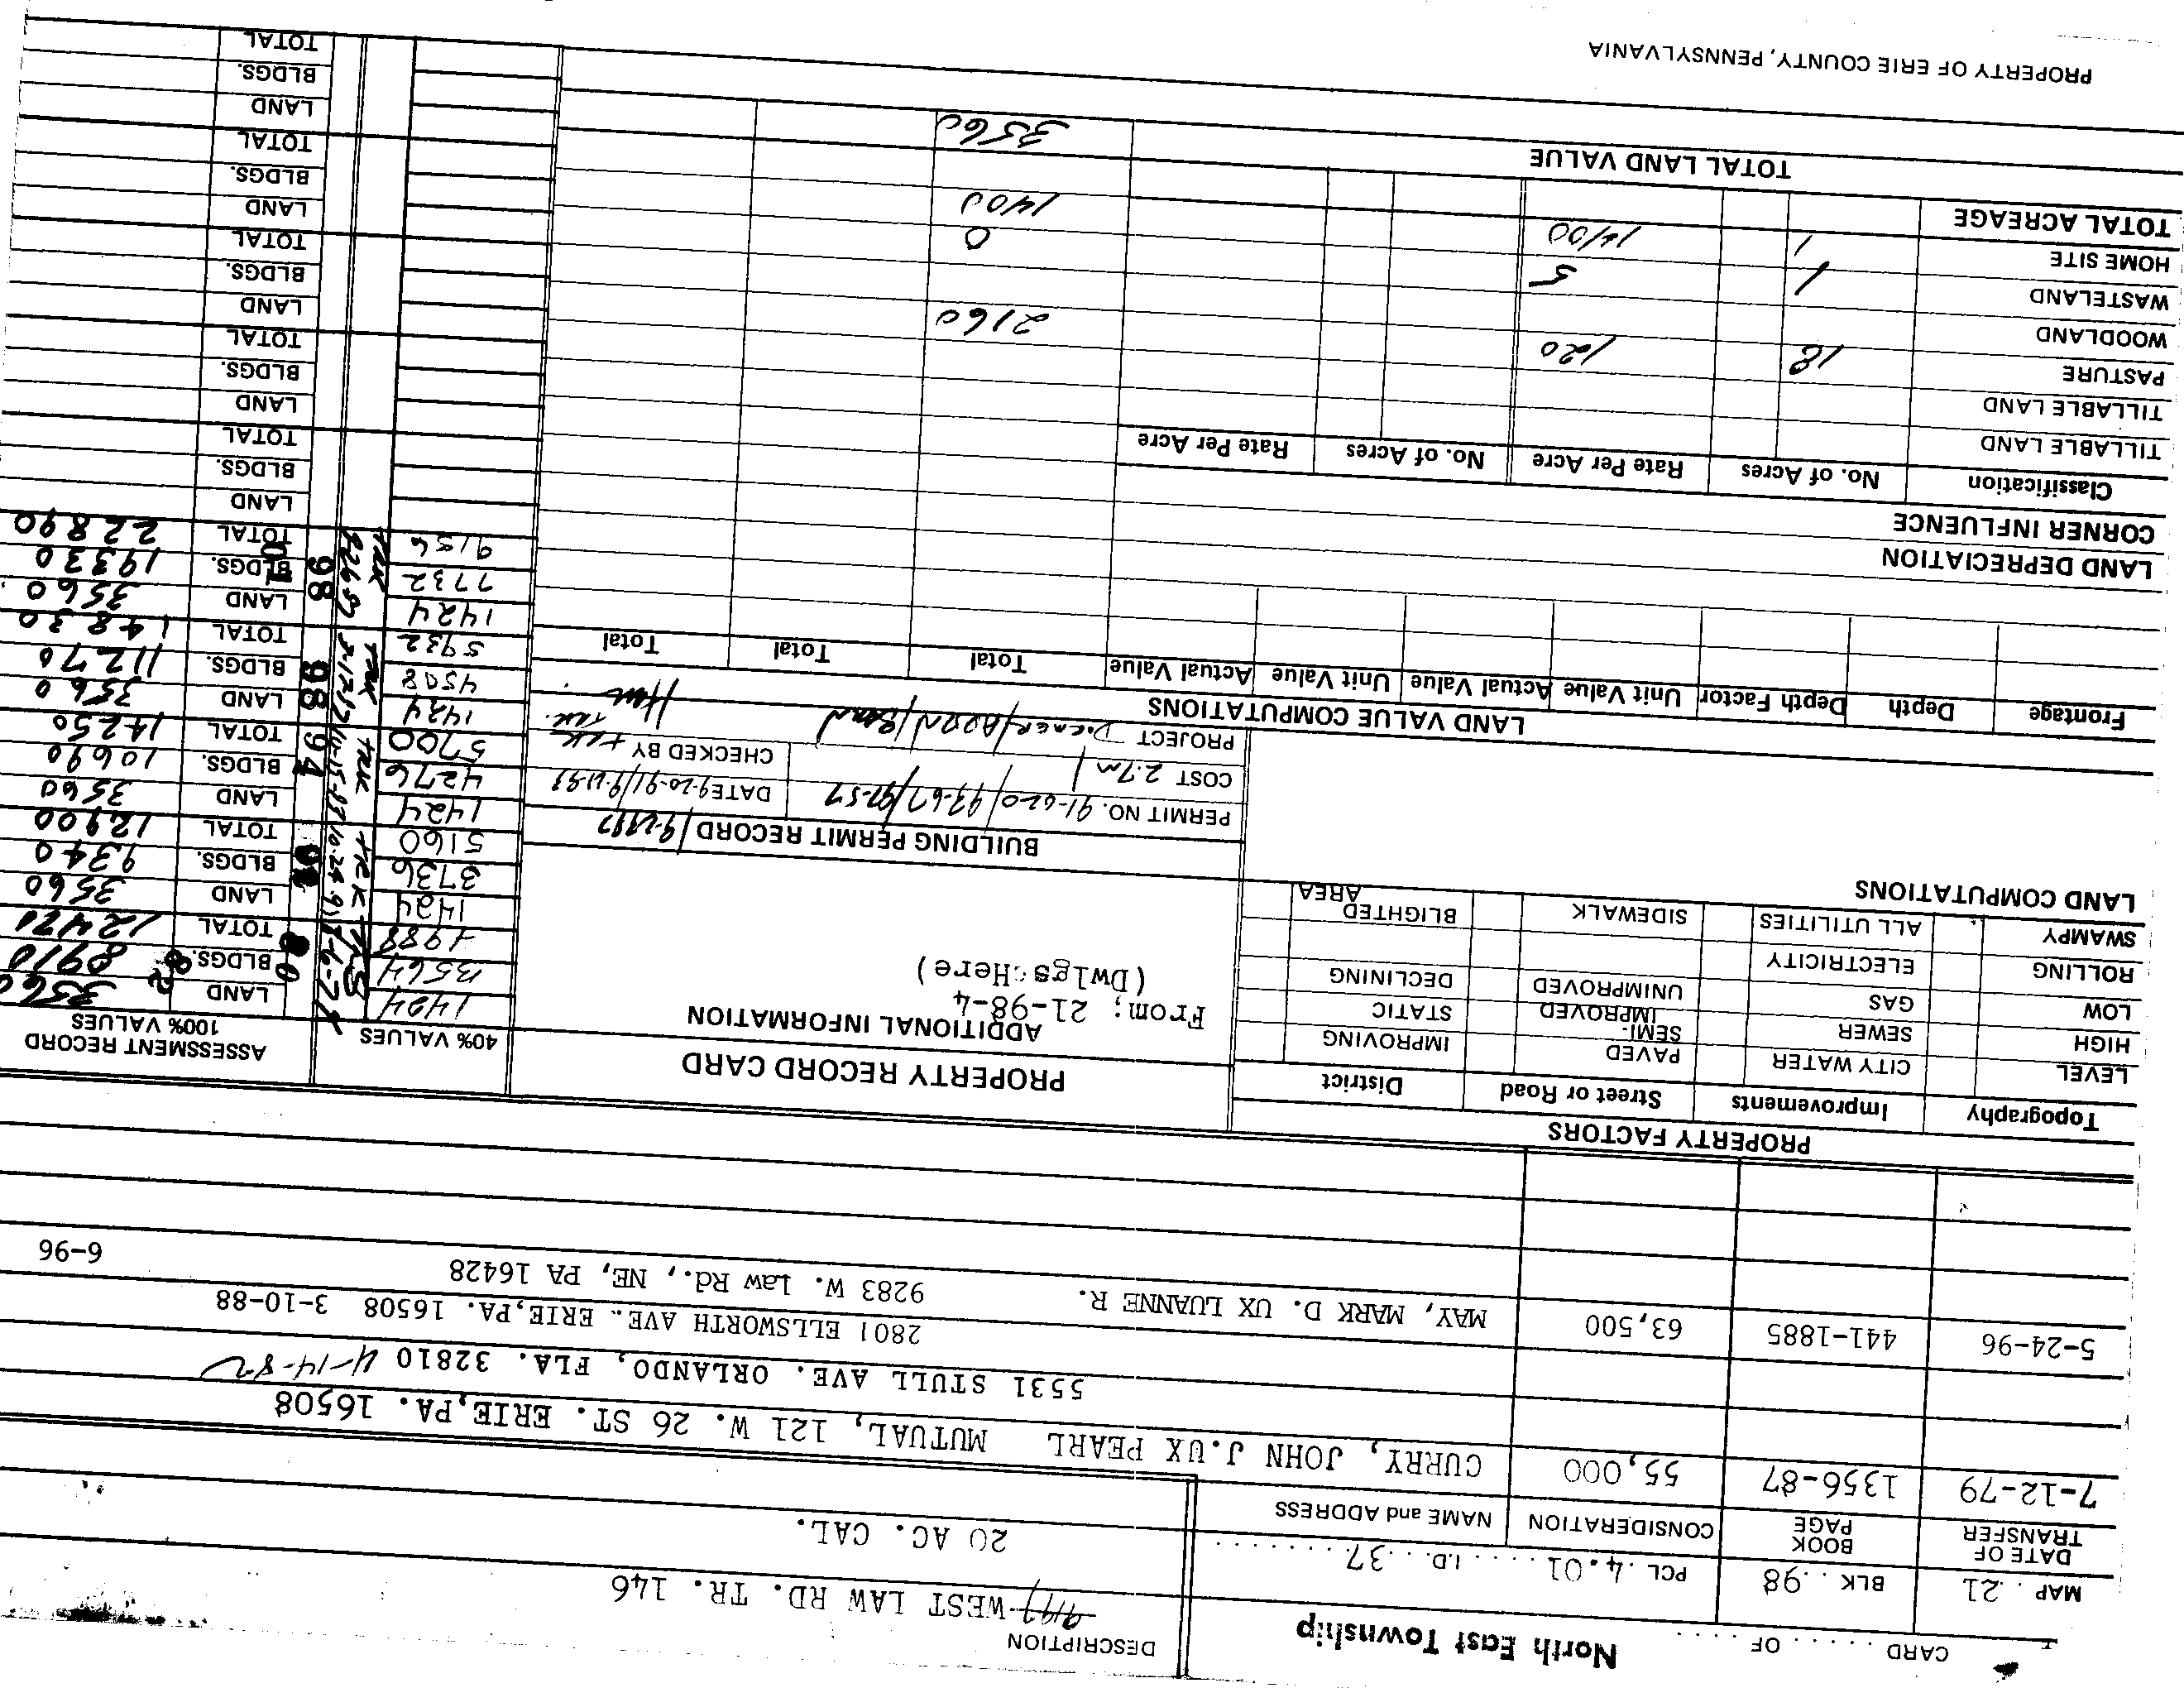 CARD ..... OF .....
North East Township
DESCRIPTION
MAP . .21 BLK . .98 PCL .4.01 .... I.D. ..37........
9197 WEST LAW RD. TR. 146
20 AC. CAL.
DATE OF TRANSFER BOOK PAGE CONSIDERATION NAME and ADDRESS
7-12-79 1356-87 55,000 CURRY, JOHN J.UX PEARL MUTUAL, 121 W. 26 ST. ERIE,PA. 16508
5531 STULL AVE. ORLANDO, FLA. 32810 4-14-82
2801 ELLSWORTH AVE.. ERIE,PA. 16508 3-10-88
5-24-96 441-1885 63,500 MAY, MARK D. UX LUANNE R. 9283 W. Law Rd., NE, PA 16428 6-96
PROPERTY FACTORS
Topography Improvements Street or Road District
LEVEL CITY WATER PAVED IMPROVING
HIGH SEWER SEMI-IMPROVED STATIC
LOW GAS UNIMPROVED DECLINING
ROLLING ELECTRICITY
SWAMPY ALL UTILITIES SIDEWALK BLIGHTED AREA
LAND COMPUTATIONS
PROPERTY RECORD CARD
ADDITIONAL INFORMATION
From; 21-98-4
(Dwlgs Here)
BUILDING PERMIT RECORD 9-2997
PERMIT NO. 91-620/93-67/97-57 DATE 9-20-91/
COST 2.7m CHECKED BY TRK
PROJECT
40% VALUES ASSESSMENT RECORD 100% VALUES
1424 LAND 3560
3564 BLDGS. 8910
4988 TOTAL 12470
1424 LAND 3560
3736 BLDGS. 9340
5160 TOTAL 12900
1424 LAND 3560
4276 94 BLDGS. 10690
5700 TOTAL 14250
1424 LAND 3560
4508 98 BLDGS. 11270
5932 TOTAL 14830
1424 98 LAND 3560
7732 BLDGS. 19330
9156 TOTAL 22890
LAND
BLDGS.
TOTAL
LAND
BLDGS.
TOTAL
LAND
BLDGS.
TOTAL
LAND
BLDGS.
TOTAL
LAND
BLDGS.
TOTAL
LAND VALUE COMPUTATIONS
Frontage Depth Depth Factor Unit Value Actual Value Unit Value Actual Value Total Total Total
LAND DEPRECIATION
CORNER INFLUENCE
Classification No. of Acres Rate Per Acre No. of Acres Rate Per Acre
TILLABLE LAND
TILLABLE LAND
PASTURE 18 120 2160
WOODLAND
WASTELAND 1 5 0
HOME SITE 1 1400 1400
TOTAL ACREAGE
TOTAL LAND VALUE 3560
PROPERTY OF ERIE COUNTY, PENNSYLVANIA